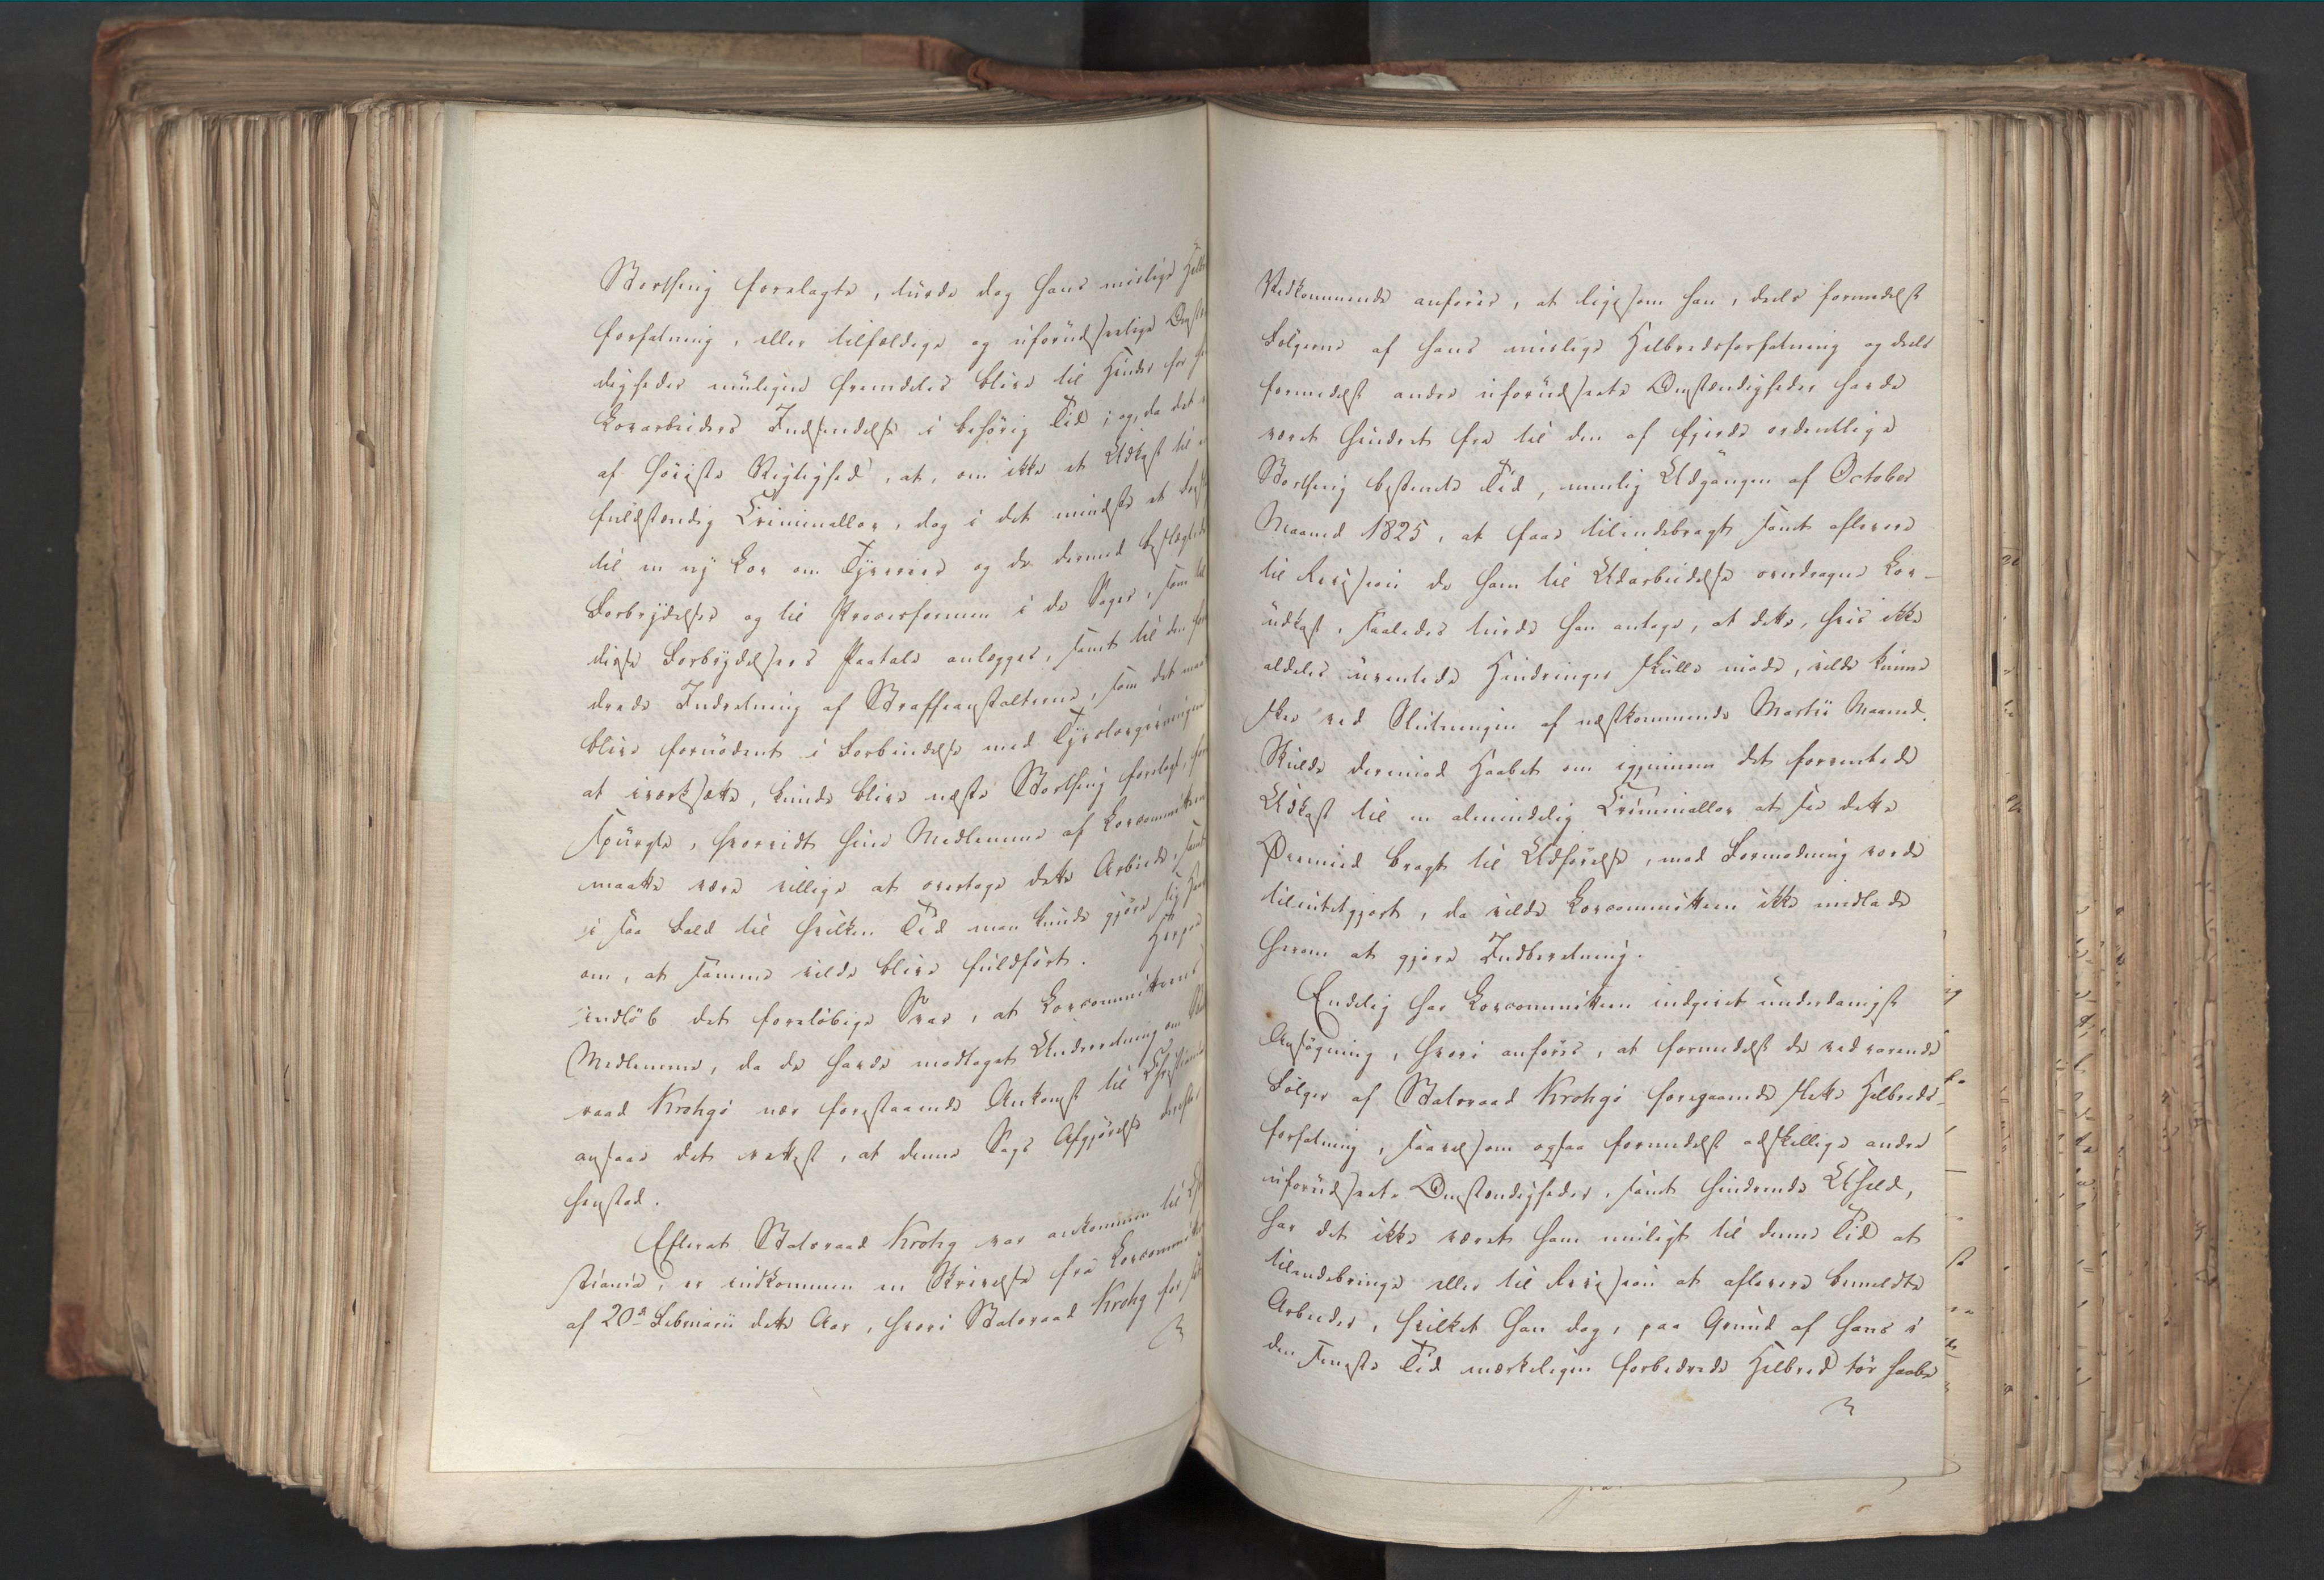 Storthing forelagte, turde dog hans mislige
forfatning, eller tilfældige og uforudseelige
digheder muligen fremdeles blive til Hinder for
Lovarbeiders Indsendelse i behørig Tid; og, da det
af høieste Vigtighed, at, om ikke et Udkast til
fuldstændig Criminallov, dog i det mindste et
til en ny Lov om Tyverier og de dermed beslægtede
Forbrydelser og til Procesformen i de Sager, som
disse Forbrydelsers Paatale anlægges, samt til den
drede Indretning af Straffeanstalterne, som det
blive fornødent i Forbindelse med Tyvslovgivningen
at iværksætte, kunde blive næste Storthing forelagt,
spurgte, hvorvidt hine Medlemmer af Lovcommitteen
maatte være villige at overtage dette Arbeide, samt
i saa Fald til hvilken Tid man kunde gjøre sig Haab
om, at samme vilde blive fuldført. Herpaa
indløb det foreløbige Svar, at Lovcommitteens
Medlemmer, da de havde modtaget Underretning om
raad Krohgs nær forestaaende Ankomst til Christiania
ansaae det rettest, at denne Sags Afgjørelse derefter
henstod.
Efterat Statsraad Krohg var ankommen til
stiania, er indkommen en Skrivelse fra
af 20de Februarii dette Aar, hvori Statsraad Krohg for
Vedkommende anfører, at ligesom han, deels formedelst
Følgerne af hans mislige Helbredsforfatning og deels
formedelst andre uforudseete Omstændigheder havde
været hindret fra til den af fjerde ordentlige
Storthing bestemte Tid, nemlig Udgangen af October
Maaned 1825, at faae tilendebragt samt aflevere
til Revision de ham til Udarbeidelse overdragne Lov-
udkast, saaledes turde han antage, at dette, hvis ikke
aldeles uventede Hindringer skulle møde, vilde kunne
skee ved Slutningen af næstkommende Martii Maaned.
Skulde derimod Haabet om igjennem det forventede
Udkast til en almindelig Criminallov at see dette
Øiemed bragt til Udførelse, mod Formodning vorde
tilintetgjort, da vilde Lovcommitteen ikke undlade
herom at gjøre Indberetning.
Endelig har Lovcommitteen indgivet underdanigst
Ansøgning, hvori anføres, at formedelst de vedvarende
Følger af Statsraad Krohgs foregaaende slette Helbreds-
forfatning, saavelsom ogsaa formedelst adskillige andre
uforudseete Omstændigheder, samt hindrende Uheld,
har det ikke været ham muligt til denne Tid at
tilendebringe eller til Revision at aflevere bemeldte
Arbeider, hvilket han dog, paa Grund af hans i
den seneste Tid mærkeligen forbedrede Helbred tør haabe